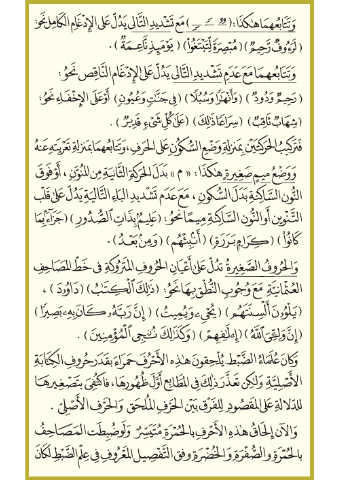 وَتَتَابُعهما هٰكذا: ( ــٌ ــٍ ) مَع تَشْدِيدِ التَّالِى يَدُلّ عَلَى الإدْغَامِ الكَامِل نحَو:
(لَرَءُوفٌ رَّحِيمٌ) (مُبْصِرَةً لِّتَبْتَغُوا۟) (يَوْمَئِذٍ نَّاعِمَةٌ) .
وَتَتَابُعهمَا مَعَ عَدَمِ تَشْدِيدِ التَّالِى يَدُلّ عَلَى الإدْغَامِ النَّاقِصِ نَحْوُ:
(رَحِيمٌ وَدُودٌ) (وَأَنْهَٰرًا وَسُبُلًا) (فِى جَنَّٰتٍ وَعُيُونٍ) أَوْ عَلَى الإخْفَاءِ نَحْوُ:
(شِهَابٌ ثَاقِبٌ) (سِرَاعًا ذَٰلِكَ) (عَلَىٰ كُلِّ شَىْءٍ قَدِيرٌ) .
فَتَركيبُ الحَركَتَيْن بِمَنزلةِ وَضْعِ السُّكُونِ عَلَى الحَرفِ، وَتتَابُعهمَا بمَنزلةِ تَعْرِيَتِهِ عَنهُ
وَوَضْعُ مِيمٍ صَغِيرةٍ هكَذا: « م » بَدَلَ الحَركَةِ الثَّانِيَةِ مِنَ المُنَوَّنِ ، أَوفَوقَ
النُّونِ السَّاكِنَةِ بَدَلَ السُّكُونِ ، مَعَ عَدَمِ تَشْدِيدِ البَاءِ التَّالِيَةِ يَدُلُّ عَلَى قَلْبِ
التَّنْوِينِ أَوِ النُّونِ السَّاكِنَةِ مِيمًا نحَوُ: (عَلِيمٌۢ بِذَاتِ ٱلصُّدُورِ) (جَزَآءًۢ بِمَا
كَانُوا۟) (كِرَامٍۭ بَرَرَةٍ) (أَنۢبِئْهُم) (وَمِنۢ بَعْدُ) .
وَالحُروفُ الصَّغِيرةُ تدُلّ عَلَى أَعْيَانِ الحُروفِ المَتْرُوكَةِ فى خَطِّ المَصَاحِفِ
العُثْمَانِيَّةِ مَعَ وُجُوبِ النُّطْقِ بِهَا نَحْوُ: (ذَٰلِكَ ٱلْكِتَٰبُ) (دَاوُۥدَ) ،
(يَلْوُۥنَ أَلْسِنَتَهُم) (يُحْىِۦ وَيُمِيتُ) (إِنَّ رَبَّهُۥ كَانَ بِهِۦ بَصِيرًا)
(إِنَّ وَلِـِّۧىَ ٱللَّهُ) (إِۦلَٰفِهِمْ) (وَكَذَٰلِكَ نُـۨجِى ٱلْمُؤْمِنِينَ) .
وَكَانَ عُلمَاءُ الضَّبْطِ يُلْحِقونَ هٰذِهِ الأَحْرُفَ حَمرَاءَ بقَدرِ حُروفِ الكِتَابَةِ
الأَصْلِيَّةِ وَلكِن تَعَذَّرَ ذلِكَ فى المَطَابِعِ أَوَّلَ ظُهُورِهَا، فَاكتُفِىَ بتَصْغِيرهَا
للدّلالَةِ عَلَى المَقصُودِ لِلفَرْقِ بَيْنَ الحَرفِ المُلْحَقِ وَالحَرفِ الأَصْلِىِّ .
وَالآنَ إلحَاقُ هٰذهِ الأَحْرفِ بالحُمْرَةِ مُتَيَسِّرٌ وَلَوْ ضُبِطَت المَصَاحِفُ
بالحُمْرَةِ وَالصُّفْرَةِ وَالخُضْرَةِ وفق التَّفْصِيلِ المَعْرُوفِ فى عِلْمِ الضَّبْطِ لَكَانَ